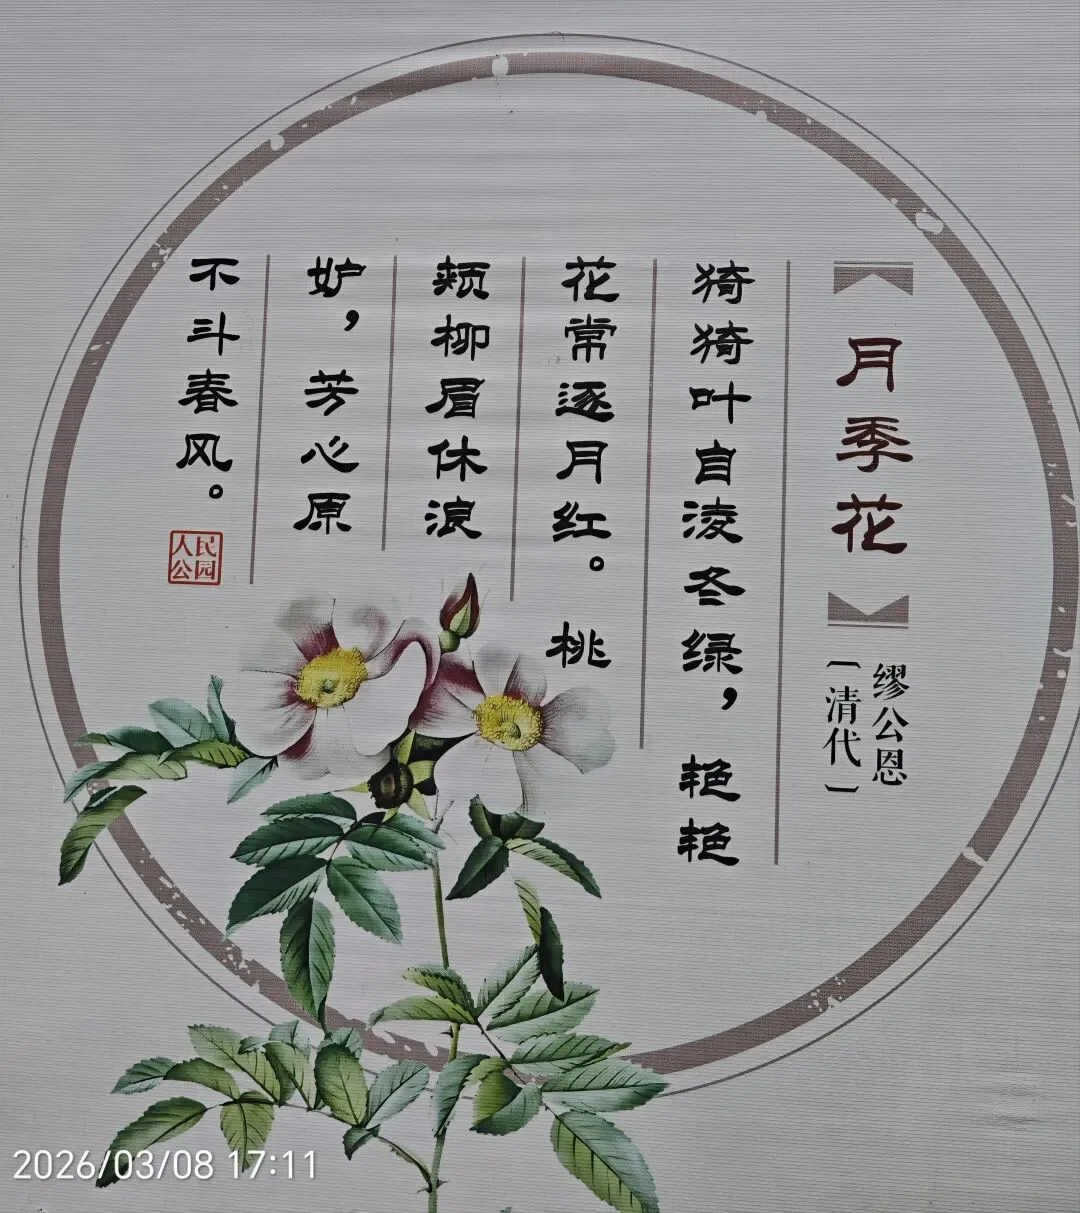 【月季花】
缪公恩
〔清代〕
猗猗叶自凌冬绿，艳艳
花常逐月红。桃
颊柳眉休浪
妒，芳心原
不斗春风。
人民
公园
2026/03/08 17:11